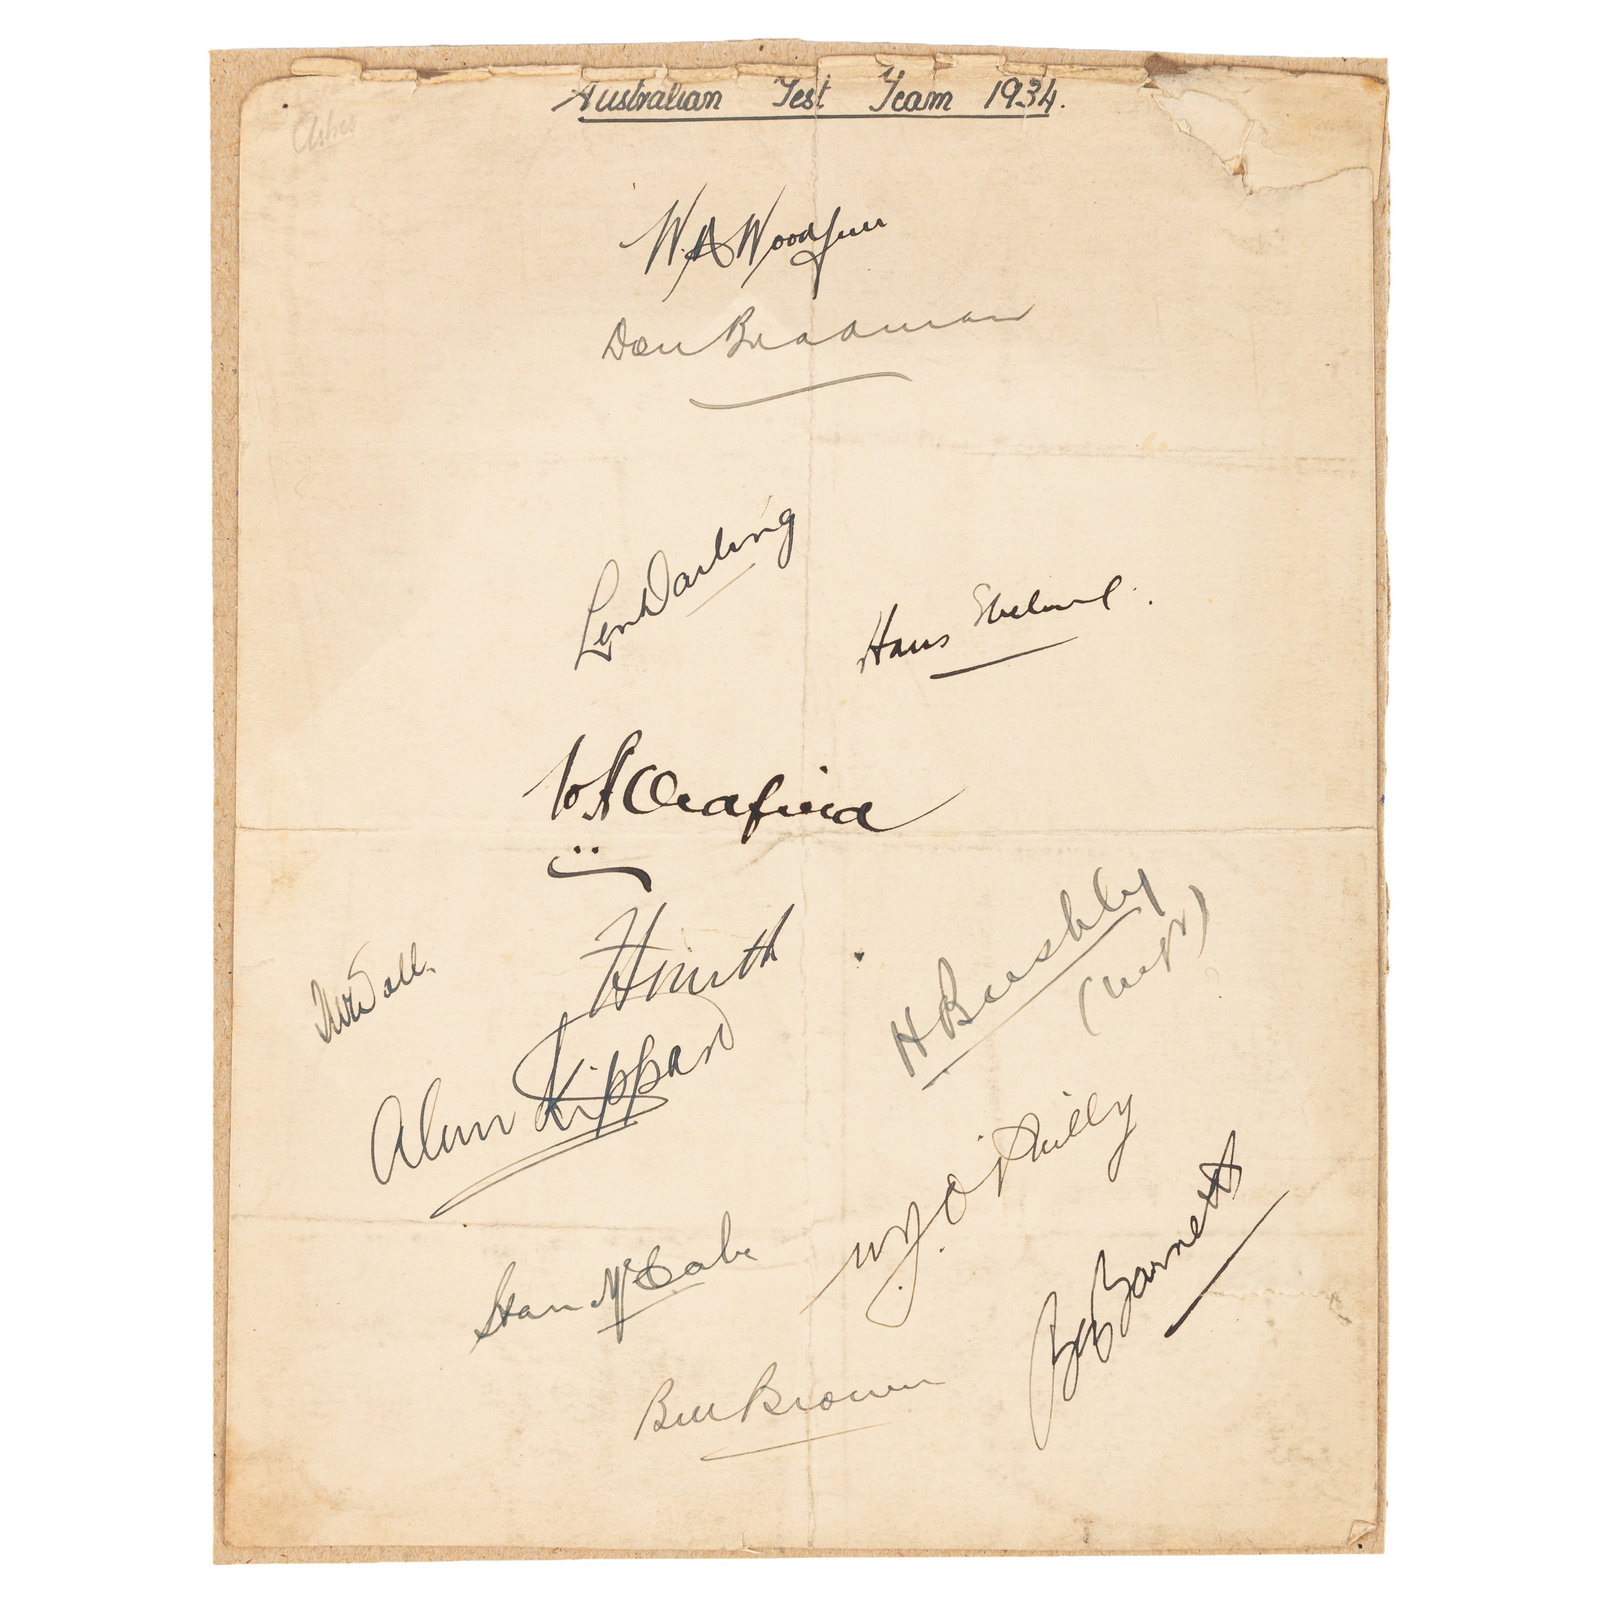 Australian Test Team 1934.
Ashes
W. A Woodfull
Don Bradman
Len Darling
Hans Ebeling.
W A Oldfield
H Bushby
(mgr)
T W Wall.
Alan Kippax
W. J. O'Reilly
Ben Barnett
Stan McCabe
Bill Brown